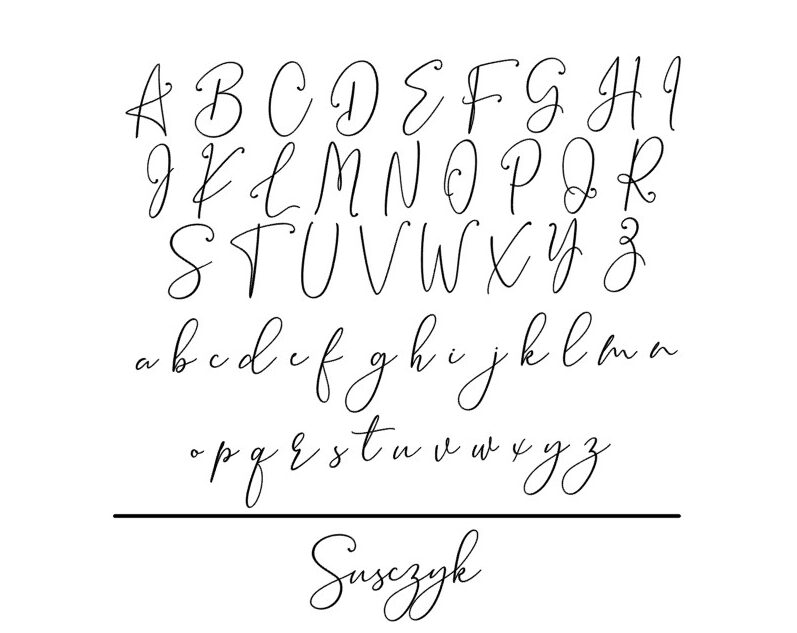 A B C D E F G H I
J K L M N O P Q R
S T U V W X Y Z
a b c d e f g h i j k l m n
o p q r s t u v w x y z
Susczyk